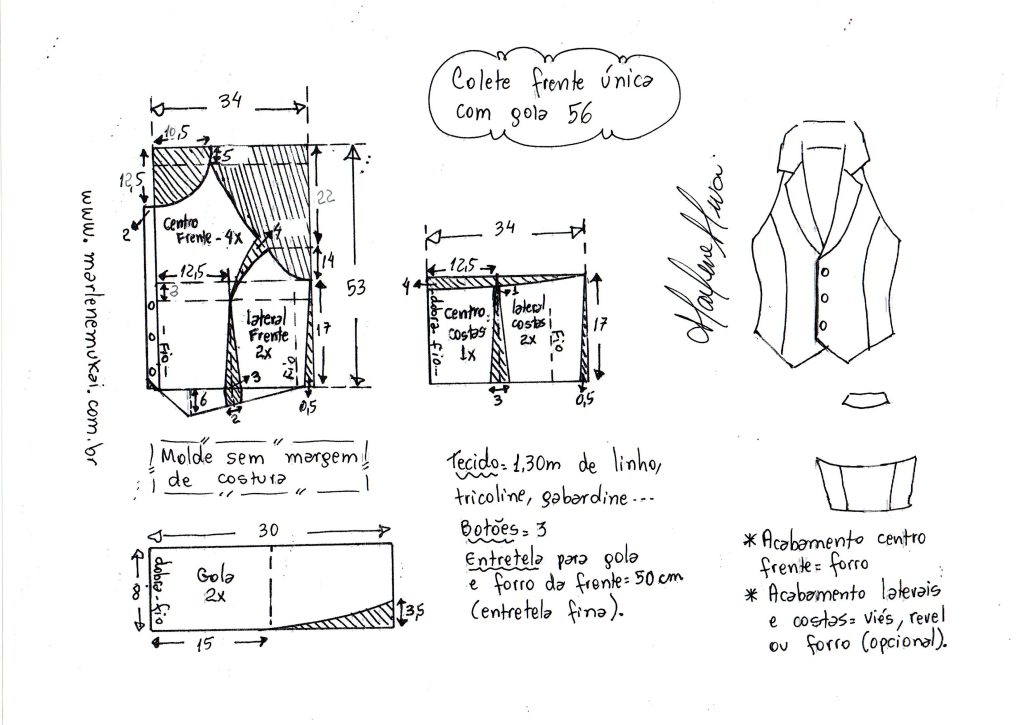 Colete frente única
com gola 56
34
10,5
5
12,5
22
2
Centro
Frente - 4x
4
14
12,5
3
53
17
Fio
lateral
Frente
2x
Fio
3
6
2
0,5
www.marlenemukai.com.br
34
12,5
4
1
dobra fio
Centro
costas
1x
lateral
costas
2x
Fio
17
3
0,5
Marlene Mukai
Molde sem margem
de costura
30
8
dobra-fio
Gola
2x
3,5
15
Tecido= 1,30m de linho,
tricoline, gabardine---
Botões= 3
Entretela para gola
e forro da frente= 50cm
(entretela fina).
* Acabamento centro
frente= forro
* Acabamento laterais
e costas= viés, revel
ou forro (opcional).